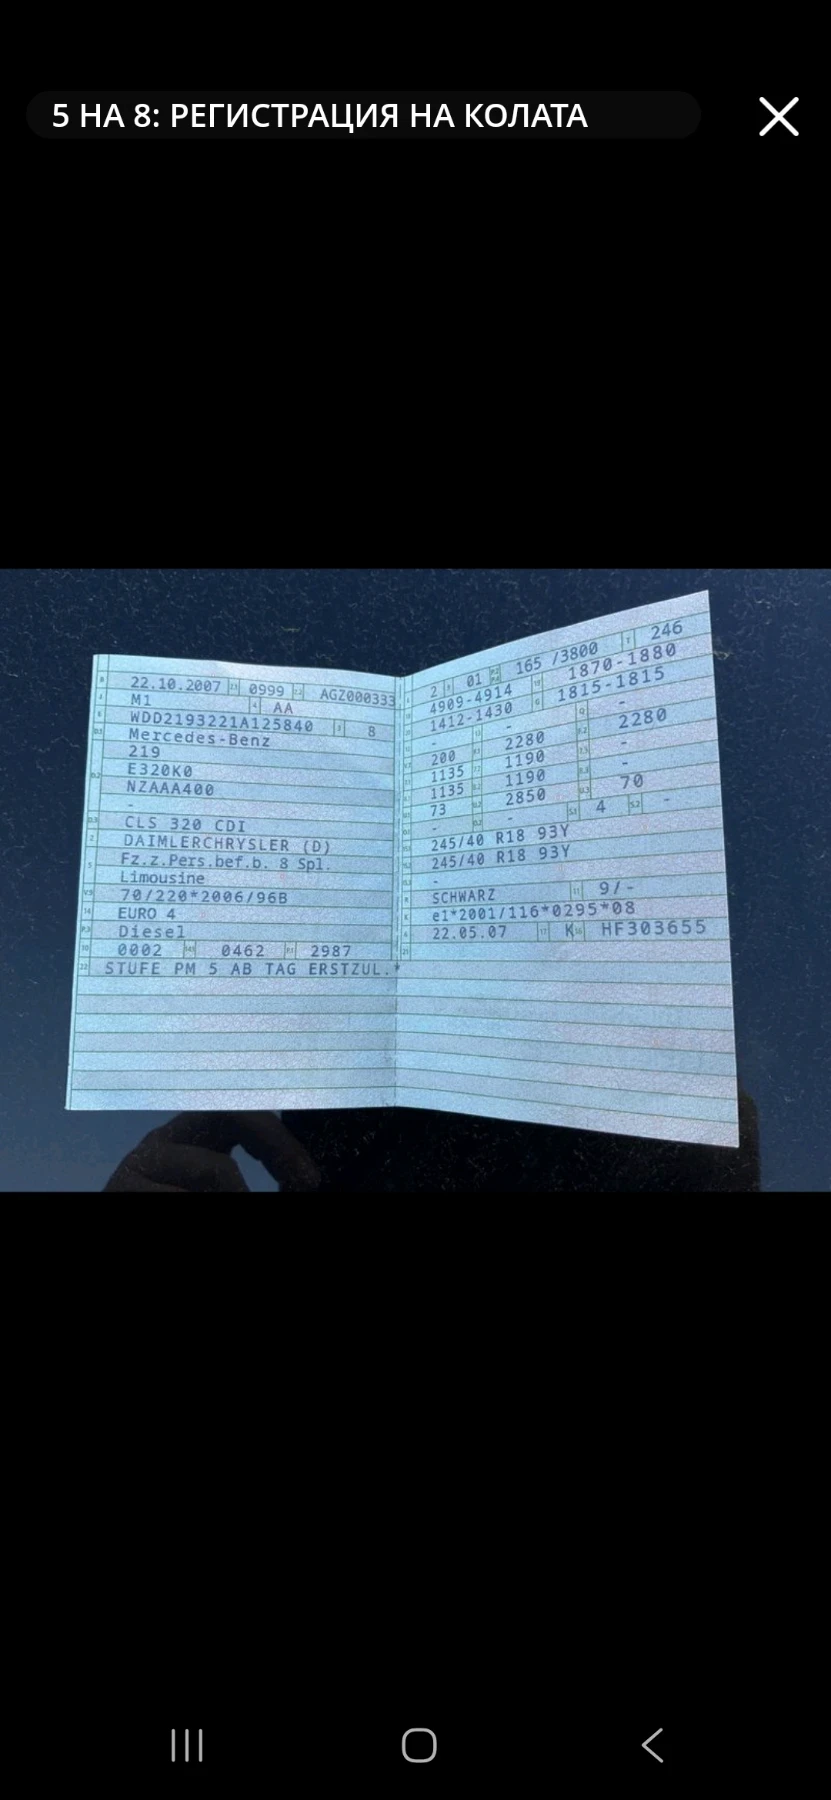 5 НА 8: РЕГИСТРАЦИЯ НА КОЛАТА
22.10.2007 0999 AGZ000333
M1 AA
WDD2193221A125840 8
Mercedes-Benz
219
E320K0
NZAAA400
-
CLS 320 CDI
DAIMLERCHRYSLER (D)
Fz.z.Pers.bef.b. 8 Spl.
Limousine
70/220*2006/96B
EURO 4
Diesel
0002 0462 2987
STUFE PM 5 AB TAG ERSTZUL.*
2 01 165 /3800 246
4909-4914 1870-1880
1412-1430 1815-1815
- - -
200 2280 2280
1135 1190 -
1135 1190 -
73 2850 70
- - 4 -
245/40 R18 93Y
245/40 R18 93Y
-
SCHWARZ 9/-
e1*2001/116*0295*08
22.05.07 K HF303655